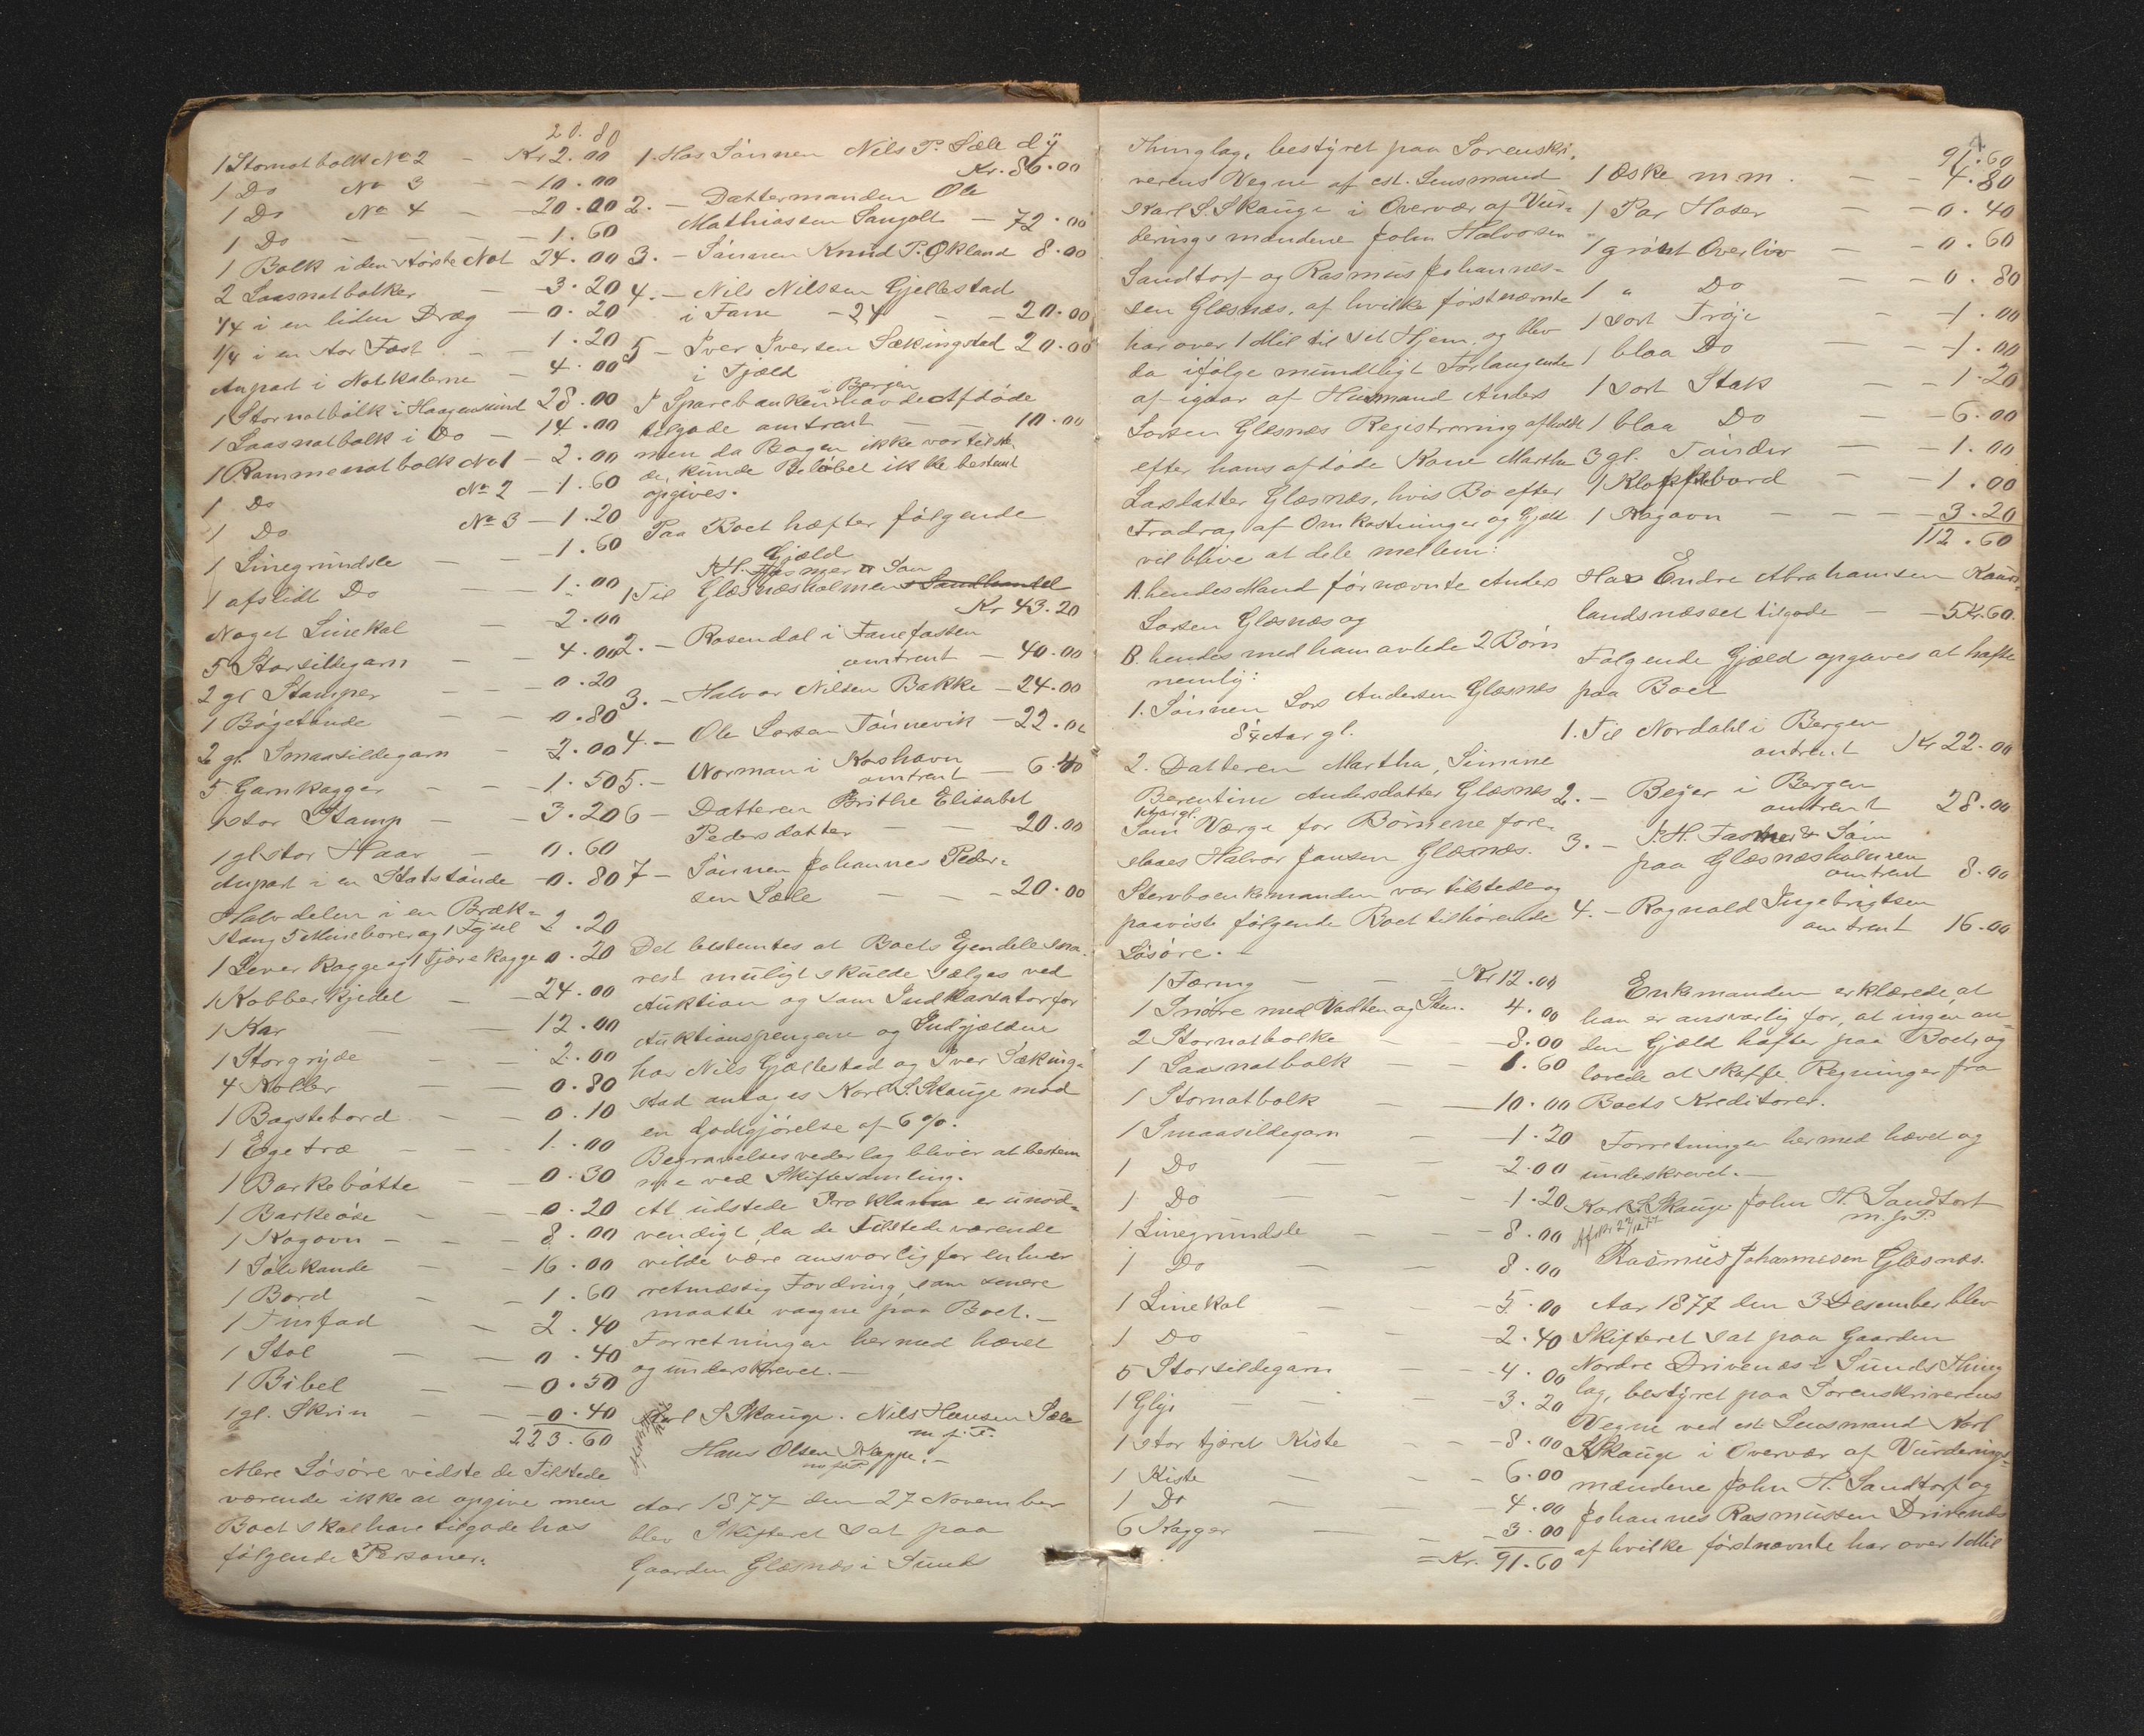 20.80
1 Stornotbolk No 2 - Kr 2.00
1 Do No 3 - - 10.00
1 Do No 4 - - 20.00
1 Do - - - - 1.60
1 Bolk i den største Not 24.00
2 Laasnotbolker - 3.20
1/4 i en liden Dræg - 0.20
1/4 i en stor Fæst - - 1.20
Anpart i Notkalerne - 4.00
1 Stornotbolk i Haagensund 28.00
1 Laasnotbolk i Do - 14.00
1 Rammenotbolk No 1 - 2.00
1 Do No 2 - 1.60
1 Do No 3 - 1.20
1 Linegrundsle - - 1.60
1 afslidt Do - - 1.00
Noget Linekol - 2.00
5 Storsildegarn - - 4.00
2 gl Stamper - - 0.20
1 Bøgetønde - - 0.80
2 gl. Smaasildegarn - 2.00
5 Garnkagger - - 1.50
1 stor Stamp - - 3.20
1 gl stor Haav - 0.60
Anpart i en Slotstønde - 0.80
Halvdelen i en Bræk-
stang 5 Mineborer og 1 Fejsel 2.20
1 Leverkagge og 1 Tjærekagge 0.20
1 Kobberkjedel - - 24.00
1 Kar - - 12.00
1 Storgryde - - 2.00
4 Koller - - 0.80
1 Bagstebord - - 0.10
1 Egetræ - - - 1.00
1 Barkebøtte - - 0.30
1 Barkeøse - - 0.20
1 Kogovn - - - 8.00
1 Sølekande - - 16.00
1 Bord - - 1.60
1 Tinfad - 2.40
1 Stol - - 0.40
1 Bibel - - 0.50
1 gl. Skrin - - 0.40
223.60
Mere Løsøre vidste de Tilstede
værende ikke at opgive men
Boet skal have tilgode hos
følgende Personer:
1. Hos Sønnen Nils P. Sæle dÿ
Kr. 86.00
2. - Dattermanden Ole
Mathiassen Sangolt - 72.00
3. - Sønnen Knud P. Økland 8.00
4. - Nils Nilssen Gjellestad
i Fane - 24 - - 20.00
5 - Iver Iversen Sækingstad 20.00
i Fjæld
i Bergen
I Sparebanken havde Afdøde
tilgode omtrent - - 10.00
men da Bogen ikke var tilste
de, kunde Beløbet ikke bestemt
opgives.
Paa Boet hæfter følgende
Gjæld
J.H. Fasmer & Søn
1 Til Glæsnæsholmens Landhandel
Kr 43.20
2. - Rosendal i Fanefasten
omtrent - 40.00
3. - Halvor Nilsen Bakke - 24.00
4. - Ole Larsen Tønnevik - 22.00
5. - Norman i Koshavn
omtrent - 6.40
6 - Datteren Brithe Elisabet
Pedersdatter - - 20.00
7 - Sønnen Johannes Peder-
sen Sæle - - 20.00
Det bestemtes at Boets Ejendele sna-
rest muligt skulde sælges ved
Auktion og som Indkassator for
Auktionspengene og Indgjælden
hos Nils Gjællestad og Iver Sæking-
stad antages Karl S. Skauge mod
en Godtgjørelse af 6 %.
Begravelsesvederlag bliver at bestem
me ved Skiftesamling.
At udstede Proklama er unød-
vendigt, da de Tilstedeværende
vilde være ansvarlig for enhver
retmæssig Fordring, som senere
maatte vaagne paa Boet. -
Forretningen hermed hævet
og underskrevet. -
Karl S Skauge. Nils Hansen Sæle
m.f.P.
Hans Olsen Kleppe. -
m.f.P.
Aar 1877 den 27 November
blev Skifteret sat paa
Gaarden Glæsnæs i Sunds
Thinglag, bestyret paa Sorenskri-
verens Vegne af cst. Lensmand
Karl S. Skauge i Overvær af Vur-
deringsmændene John Halvorsen
Sandtorf og Rasmus Johannes-
sen Glæsnæs, af hvilke førstnævnte
har over 1 Mil til sit Hjem, og blev
da ifølge mundtligt Forlangende
af igaar af Husmand Anders
Larsen Glæsnæs Registrering afholdt
efter hans afdøde Kone Martha
Larsdatter Glæsnæs, hvis Bo efter
Fradrag af Omkostninger og Gjæld
vil blive at dele mellem:
A. hendes Mand førnævnte Anders
Larsen Glæsnæs og
B. hendes med ham avlede 2 Børn
nemlig:
1. Sønnen Lars Andersen Glæsnæs
8 1/4 Aar gl.
2. Datteren Martha, Simine
Berentine Andersdatter Glæsnes
Som Værge for Børnene fore-
slaaes Halvor Jansen Glæsnæs.
Stervboenkemanden var tilstede og
paaviste følgende Boet tilhørende
Løsøre. -
1 Færing - - Kr 12.00
1 Snøre med Vadben og Sten. 4.00
2 Stornotbolke - - 8.00
1 Laasnotbolk - - 1.60
1 Stornotbolk - - 10.00
1 Smaasildegarn - - 1.20
1 Do - - - 2.00
1 Do - - - 1.20
1 Linegrundsle - - 8.00
1 Do - - 8.00
1 Linekol - - 5.00
1 Do - - 2.40
5 Storsildegarn - - 4.00
1 Glye - - - 3.20
1 stor tjæret Kiste - - 8.00
1 Kiste - - 6.00
1 Do - - 4.00
6 Kagger - - 3.00
= Kr. 91.60
91.60
1 Æske m m. - - 4.80
1 Par Hoser - - 0.40
1 grønt Overliv - - 0.60
1 " Do - - 0.80
1 sort Trøje - - 1.00
1 blaa Do - - 1.00
1 sort Stak - - 1.20
1 blaa Do - - 6.00
3 gl. Tønder - - 1.00
1 Klappebord - - 1.00
1 Kogovn - - - 3.20
112.60
Hos Endre Abrahamsen Kaurs-
landsnæsset tilgode - - 5 Kr. 60.
Følgende Gjæld opgaves at hæfte
paa Boet
1. Til Nordahl i Bergen
omtrent Kr 22.00
2. - Bejer i Bergen
omtrent 28.00
3. - J.H. Fasmer & Søn
paa Glæsnæsholmen
omtrent 8.00
4. - Ragnald Ingebrigtsen
omtrent 16.00
Enkemanden erklærede, at
han er ansvarlig for, at ingen an-
den Gjæld hæfter paa Boet, og
lovede at skaffe Regninger fra
Boets Kreditorer.
Forretningen hermed hævet og
underskrevet. -
Karl S Skauge John H. Sandtorf
m.f.P.
Rasmus Johannesen Glæsnæs.
Aar 1877 den 3 Desember blev
Skifteret sat paa Gaarden
Nordre Drivenæs i Sunds Thing
lag, bestyret paa Sorenskriverens
Vegne ved cst. Lensmand Karl
S Skauge i Overvær af Vurderings-
mændene John H. Sandtorf og
Johannes Rasmussen Drivenæs
af hvilke førstnævnte har over 1 Mil